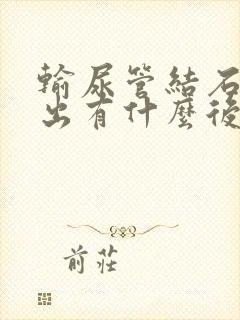 輸尿管結石
出有什麼後
前莊